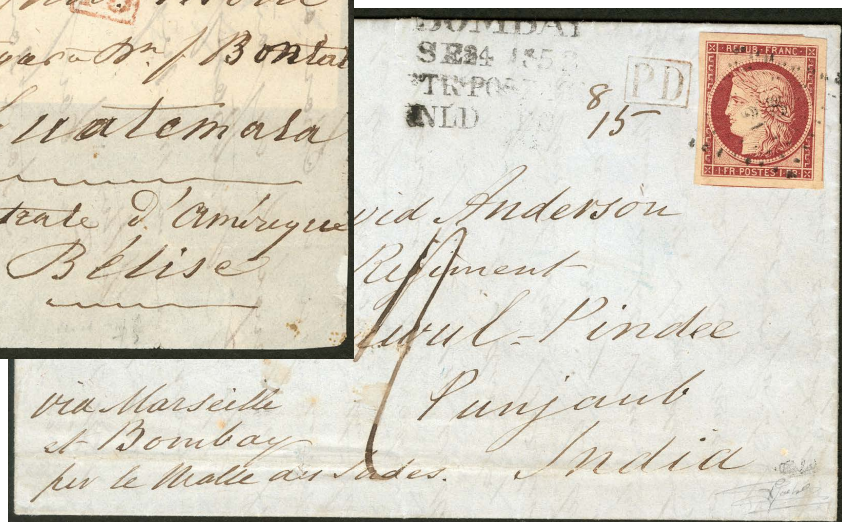 Bontat
Guatemala
d'Amérique
Bélise
BOMBAY
SE 24 185
NLD
PD
8/15
REPUB. FRANC.
1 FR. POSTES 1 FR.
vid Anderson
Regiment
wul-Pindee
Punjaub
India
via Marseille
et Bombay
per le Malle des Indes.